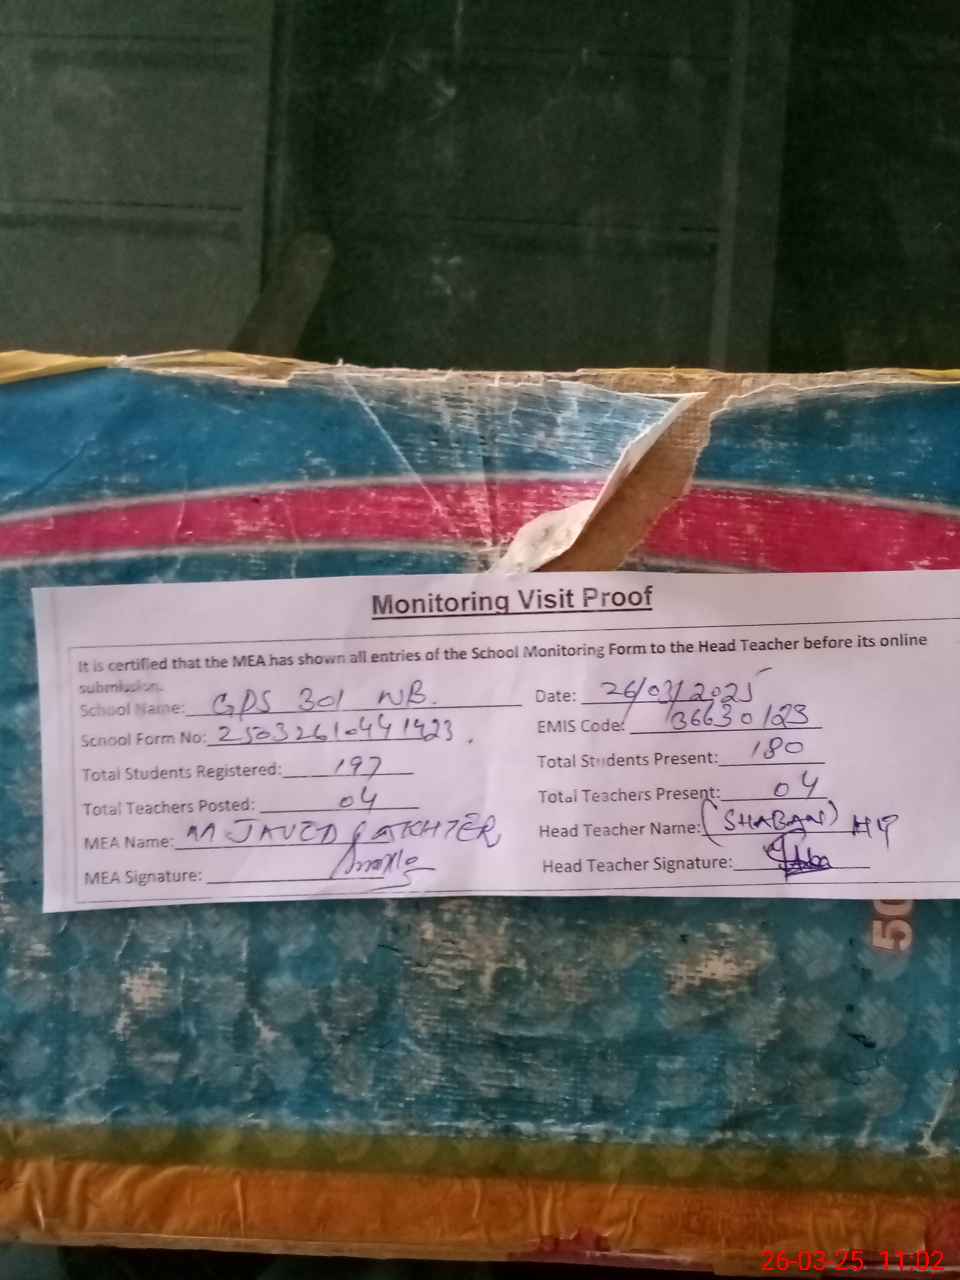 Monitoring Visit Proof
It is certified that the MEA has shown all entries of the School Monitoring Form to the Head Teacher before its online
submission.
School Name: GPS 301 WB. Date: 26/03/2025
School Form No: 2503261044 1423. EMIS Code: 36630123
Total Students Registered: 197 Total Students Present: 180
Total Teachers Posted: 04 Total Teachers Present: 04
MEA Name: M JAVED AKHTER Head Teacher Name: (SHABAN)
MEA Signature: Head Teacher Signature:
50
26-03-25 11:02